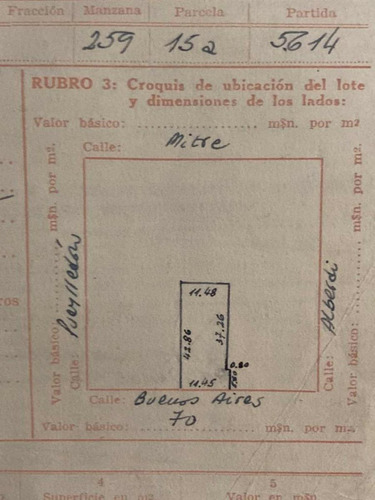 Fracción Manzana Parcela Partida
259 15a 5614
RUBRO 3: Croquis de ubicación del lote
y dimensiones de los lados:
Valor básico: m$n. por m2
Calle: Mitre
Valor básico: m$n. por m2.
Calle: Pueyrredón
11.48
42.86
37.26
0.80
11.45
Calle: Alberdi
Valor básico: m$n. por m2.
Calle: Buenos Aires
Valor básico: 70 m$n. por m2
4 5
Superficie en m2 Valor en m$n.